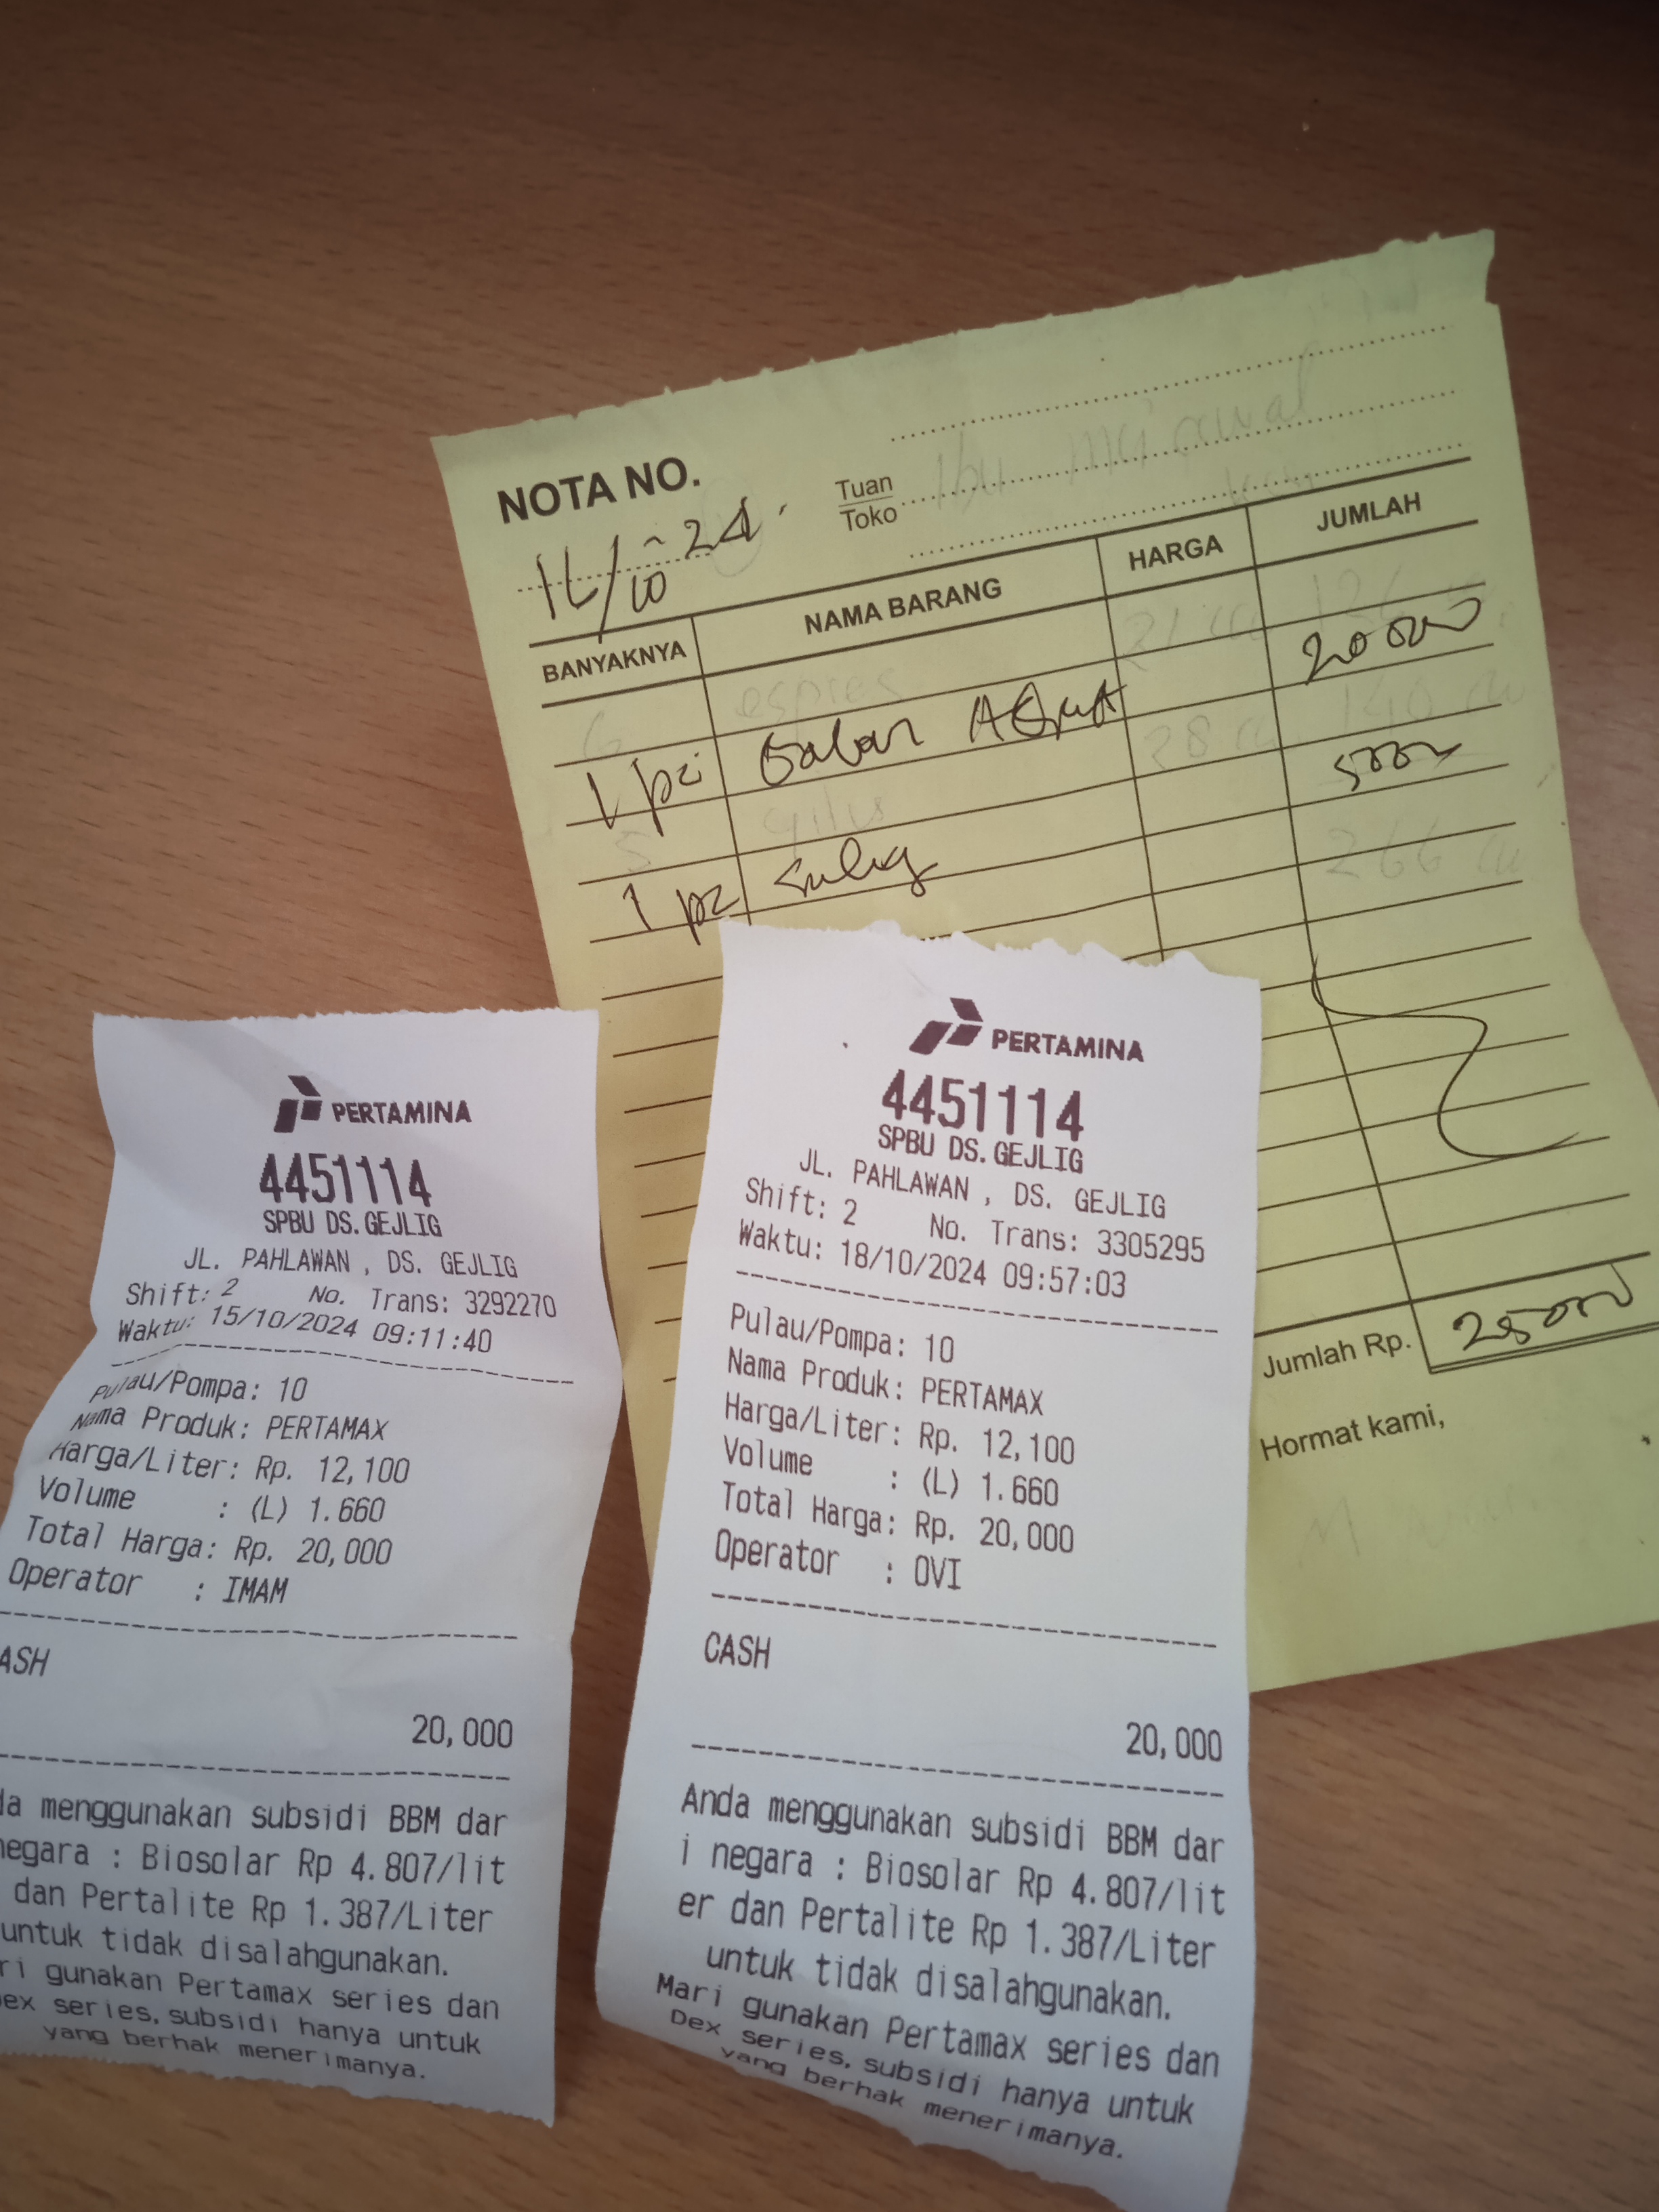 NOTA NO.
Tuan
Toko
/10 - 24
BANYAKNYA NAMA BARANG HARGA JUMLAH
20 000
1 pc
5000
1 pc
Jumlah Rp. 25000
Hormat kami,
PERTAMINA
4451114
SPBU DS.GEJLIG
JL. PAHLAWAN , DS. GEJLIG
Shift: 2 No. Trans: 3292270
Waktu: 15/10/2024 09:11:40
Pulau/Pompa: 10
Nama Produk: PERTAMAX
Harga/Liter: Rp. 12,100
Volume : (L) 1.660
Total Harga: Rp. 20,000
Operator : IMAM
ASH
20,000
da menggunakan subsidi BBM dar
negara : Biosolar Rp 4.807/lit
dan Pertalite Rp 1.387/Liter
untuk tidak disalahgunakan.
ri gunakan Pertamax series dan
ex series, subsidi hanya untuk
yang berhak menerimanya.
PERTAMINA
4451114
SPBU DS.GEJLIG
JL. PAHLAWAN , DS. GEJLIG
Shift: 2 No. Trans: 3305295
Waktu: 18/10/2024 09:57:03
Pulau/Pompa: 10
Nama Produk: PERTAMAX
Harga/Liter: Rp. 12,100
Volume : (L) 1.660
Total Harga: Rp. 20,000
Operator : OVI
CASH
20,000
Anda menggunakan subsidi BBM dar
i negara : Biosolar Rp 4.807/lit
er dan Pertalite Rp 1.387/Liter
untuk tidak disalahgunakan.
Mari gunakan Pertamax series dan
Dex series, subsidi hanya untuk
yang berhak menerimanya.